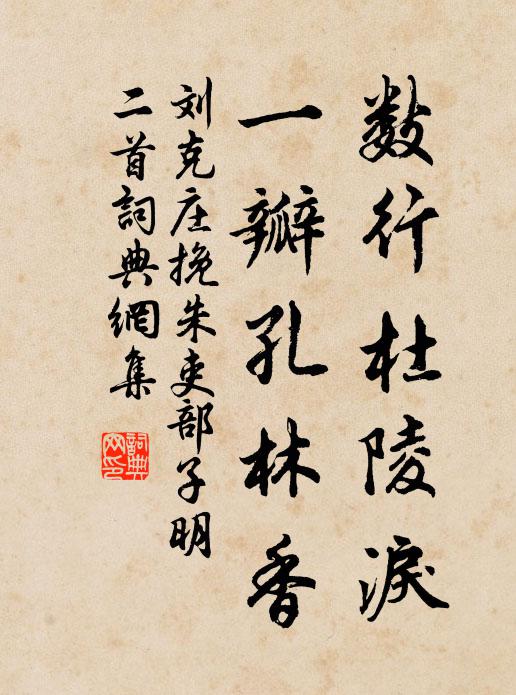 数行杜陵淚
一瓣孔林香
刘克庄挽朱吏部子明
二首詞典網集
詞典网印